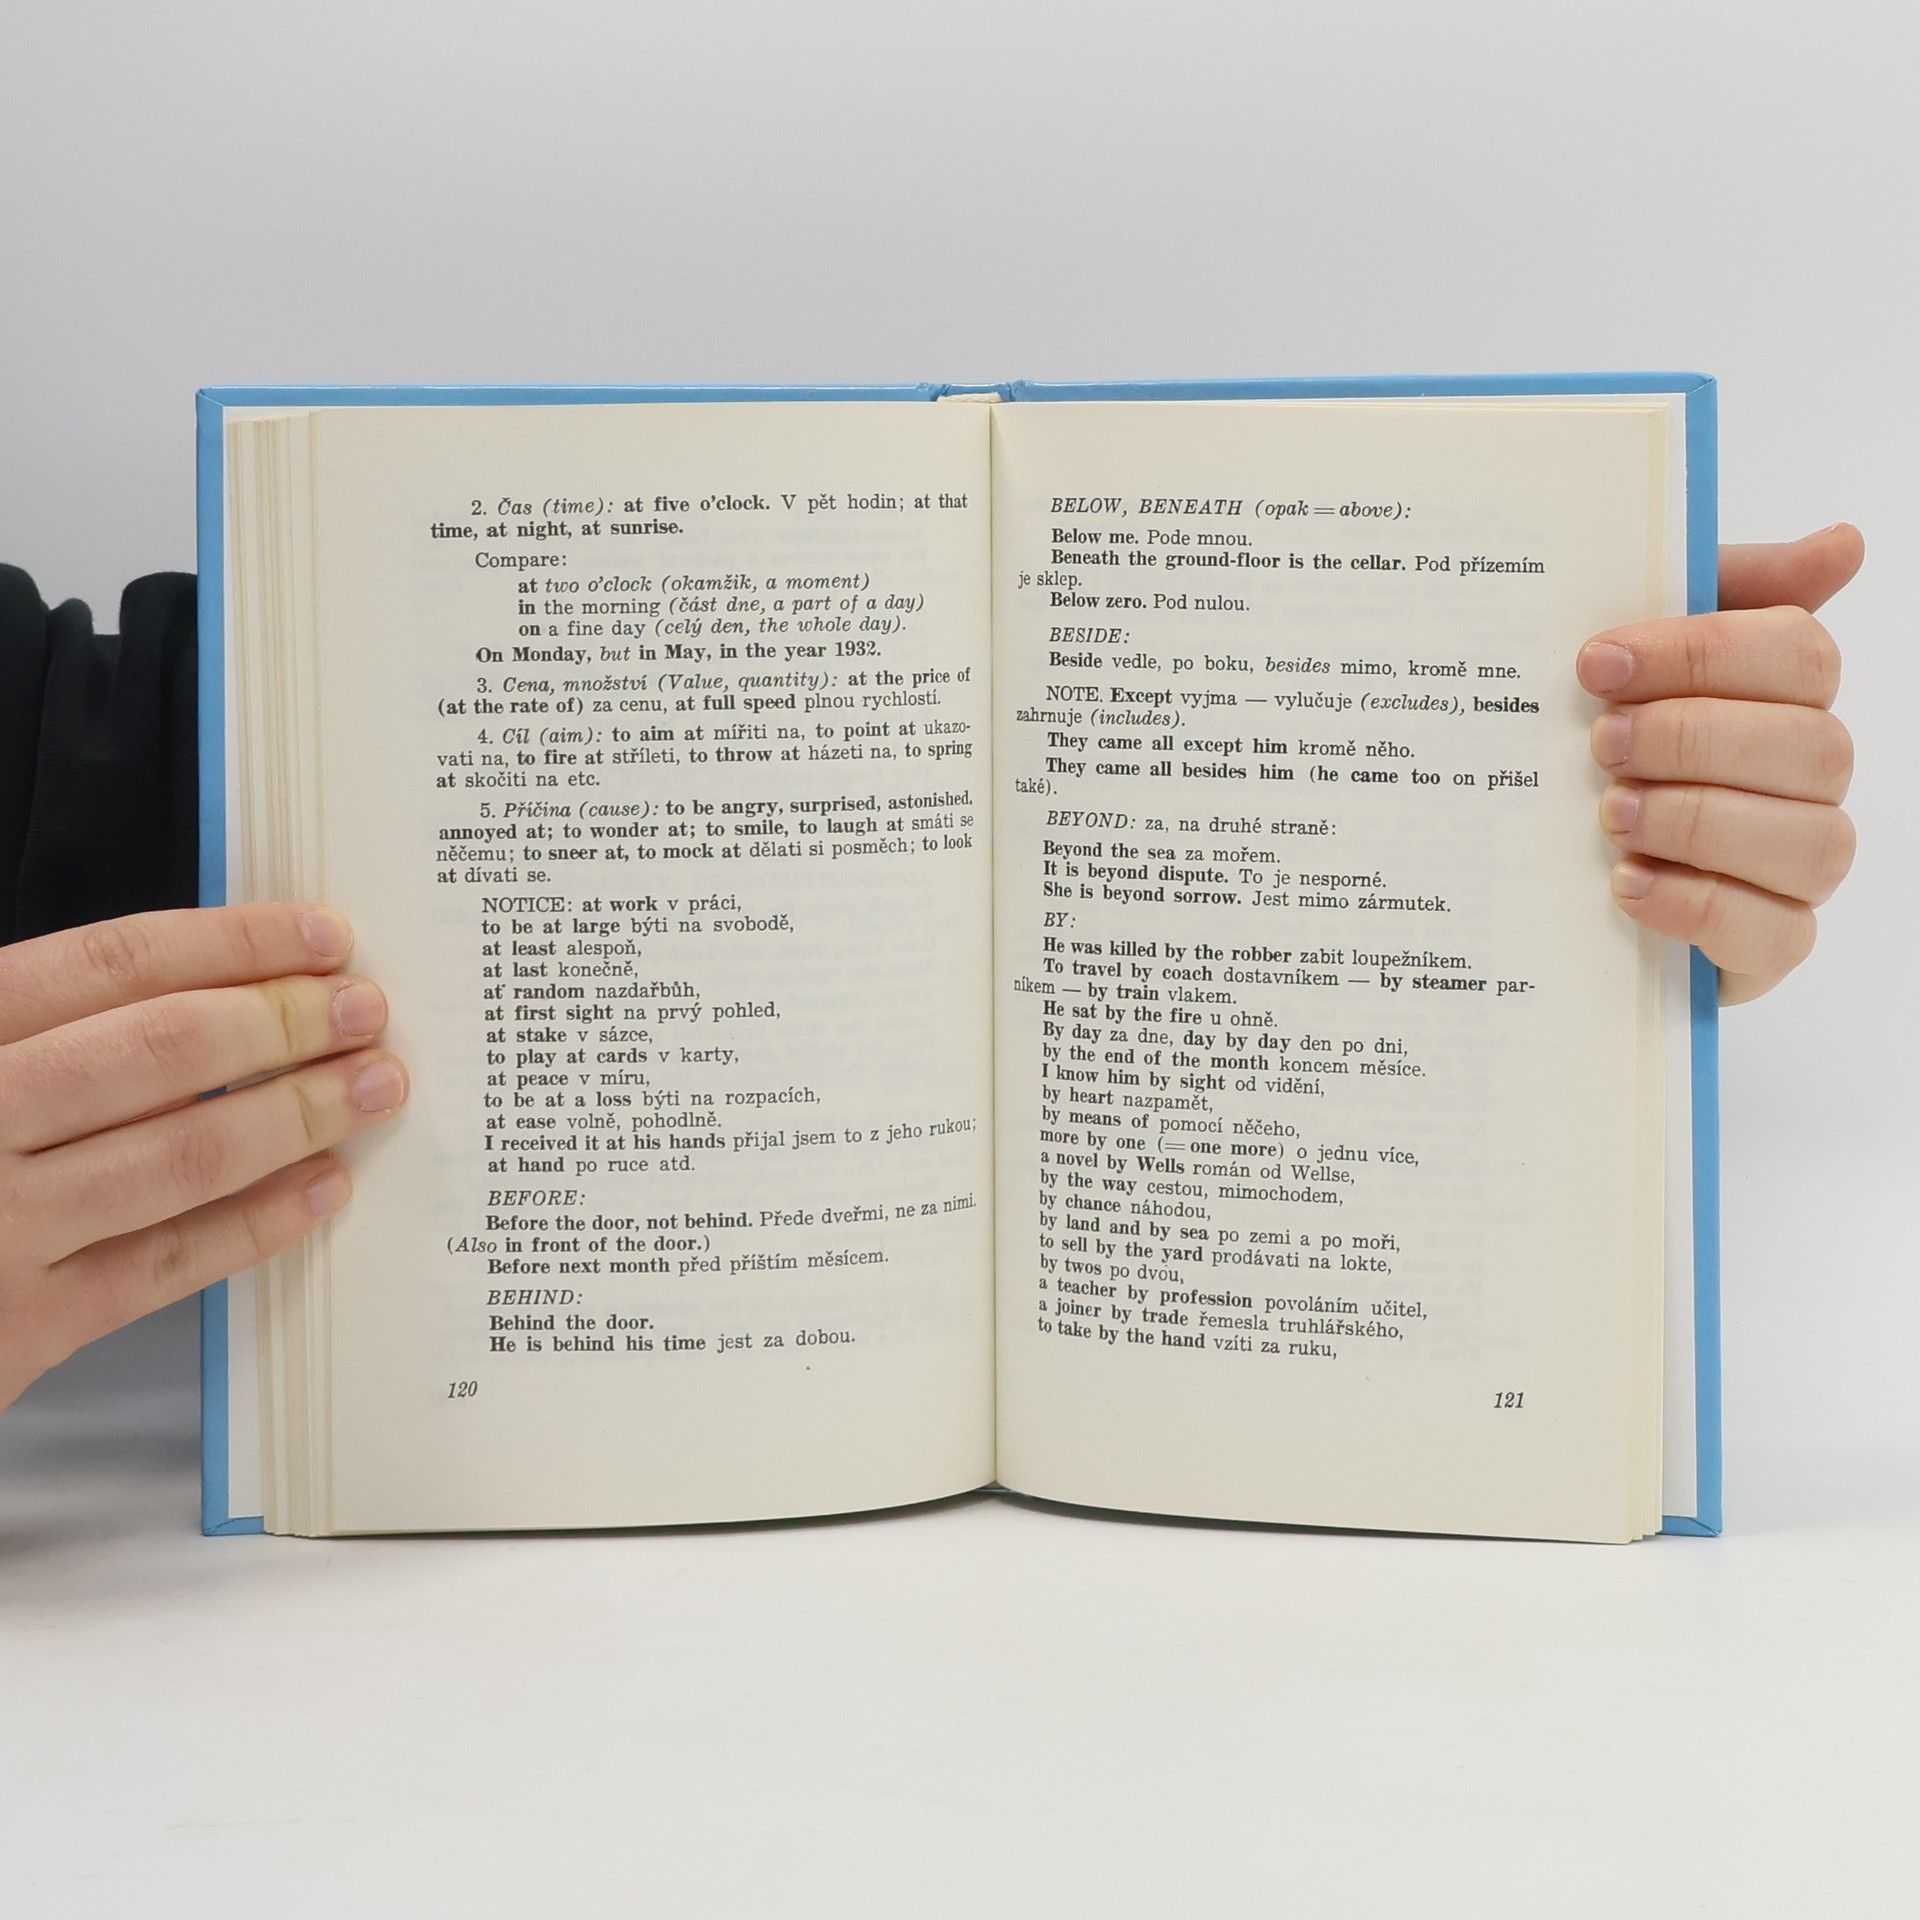 2. Čas (time): at five o'clock. V pět hodin; at that
time, at night, at sunrise.
Compare:
at two o'clock (okamžik, a moment)
in the morning (část dne, a part of a day)
on a fine day (celý den, the whole day).
On Monday, but in May, in the year 1932.
3. Cena, množství (Value, quantity): at the price of
(at the rate of) za cenu, at full speed plnou rychlostí.
4. Cíl (aim): to aim at mířiti na, to point at ukazo-
vati na, to fire at stříleti, to throw at házeti na, to spring
at skočiti na etc.
5. Příčina (cause): to be angry, surprised, astonished,
annoyed at; to wonder at; to smile, to laugh at smáti se
něčemu; to sneer at, to mock at dělati si posměch; to look
at dívati se.
NOTICE: at work v práci,
to be at large býti na svobodě,
at least alespoň,
at last konečně,
at random nazdařbůh,
at first sight na prvý pohled,
at stake v sázce,
to play at cards v karty,
at peace v míru,
to be at a loss býti na rozpacích,
at ease volně, pohodlně.
I received it at his hands přijal jsem to z jeho rukou;
at hand po ruce atd.
BEFORE:
Before the door, not behind. Přede dveřmi, ne za nimi.
(Also in front of the door.)
Before next month před příštím měsícem.
BEHIND:
Behind the door.
He is behind his time jest za dobou.
120
BELOW, BENEATH (opak = above):
Below me. Pode mnou.
Beneath the ground-floor is the cellar. Pod přízemím
je sklep.
Below zero. Pod nulou.
BESIDE:
Beside vedle, po boku, besides mimo, kromě mne.
NOTE. Except vyjma — vylučuje (excludes), besides
zahrnuje (includes).
They came all except him kromě něho.
They came all besides him (he came too on přišel
také).
BEYOND: za, na druhé straně:
Beyond the sea za mořem.
It is beyond dispute. To je nesporné.
She is beyond sorrow. Jest mimo zármutek.
BY:
He was killed by the robber zabit loupežníkem.
To travel by coach dostavníkem — by steamer par-
níkem — by train vlakem.
He sat by the fire u ohně.
By day za dne, day by day den po dni,
by the end of the month koncem měsíce.
I know him by sight od vidění,
by heart nazpamět,
by means of pomocí něčeho,
more by one (= one more) o jednu více,
a novel by Wells román od Wellse,
by the way cestou, mimochodem,
by chance náhodou,
by land and by sea po zemi a po moři,
to sell by the yard prodávati na lokte,
by twos po dvou,
a teacher by profession povoláním učitel,
a joiner by trade řemesla truhlářského,
to take by the hand vzíti za ruku,
121